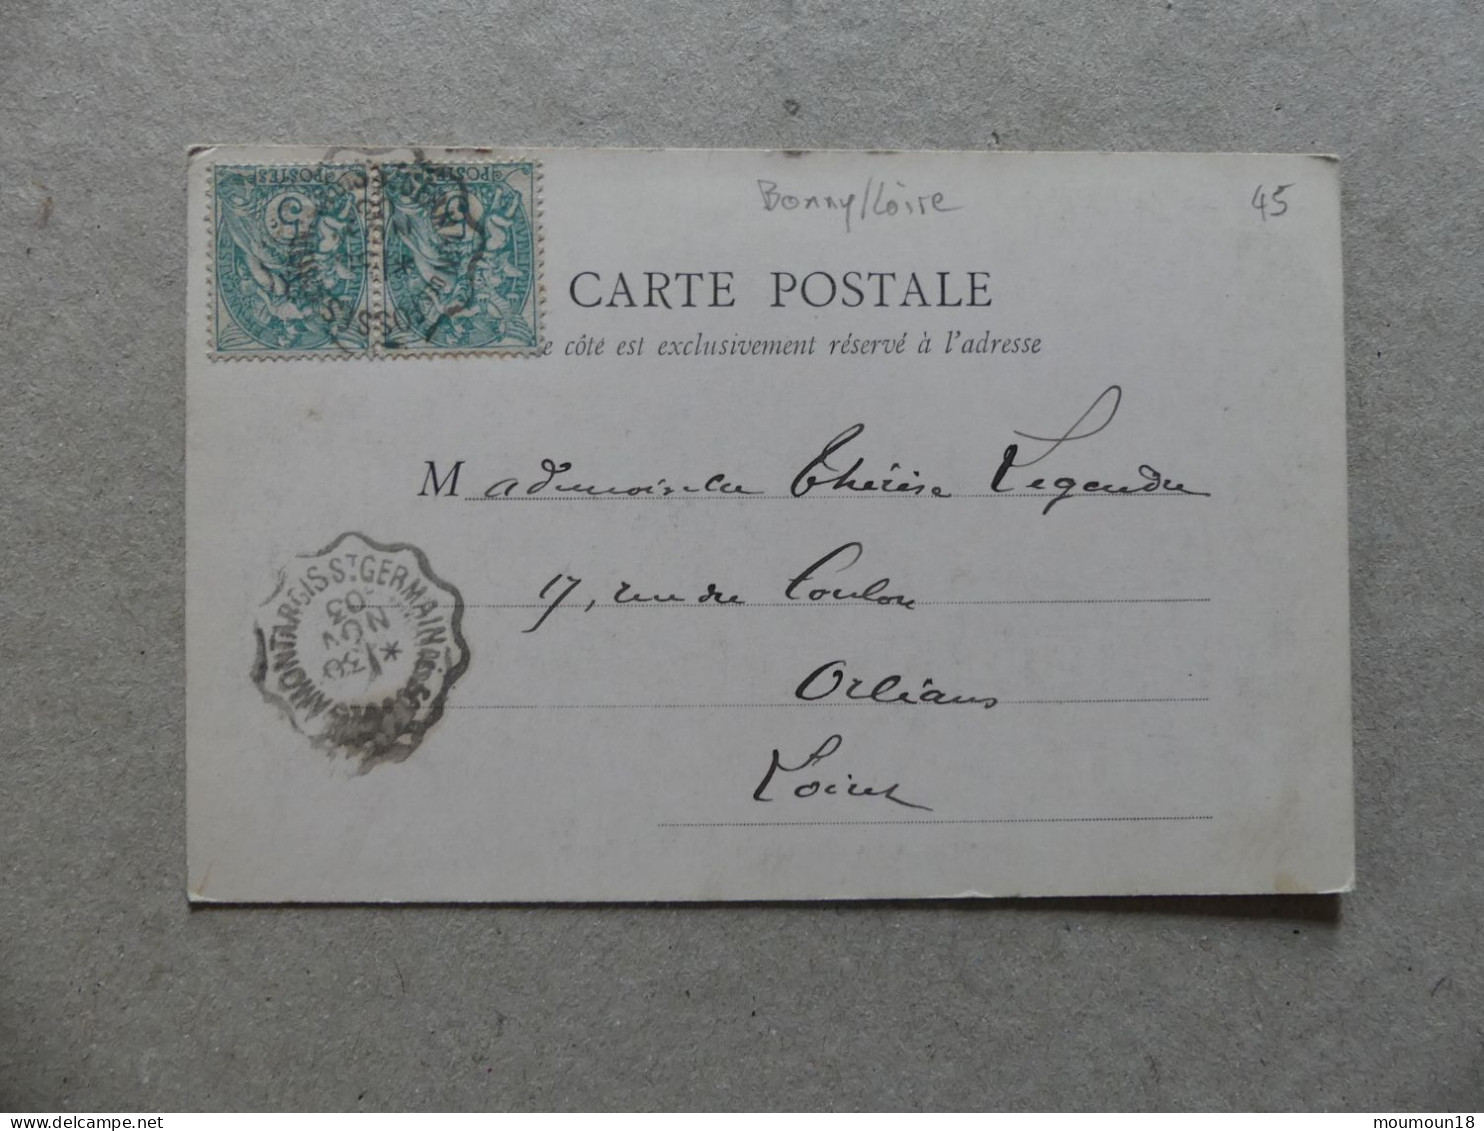 Bonny/Loire
45
CARTE POSTALE
e côté est exclusivement réservé à l'adresse
Mademoiselle Thérèse Legendre
17, rue de Toulon
Orléans
Loiret
MONTARGIS ST GERMAIN
03
5
POSTES
5
POSTES
moumoun18